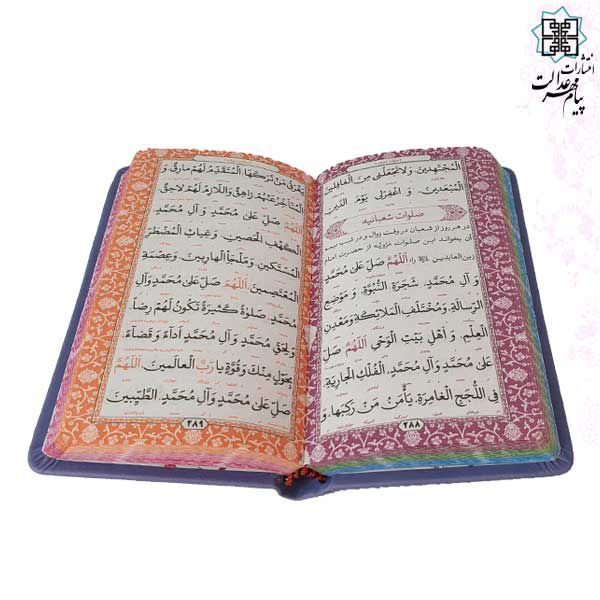 انتشارات
پیام مهر عدالت
الْمُجْتَهِدينَ، وَ لا تَجْعَلْنى مِنَ الْغافِلينَ
الْمُبْعَدينَ، وَ اغْفِرْلى يَوْمَ الدّينِ.
صلوات شعبانیه
در هر روز از شعبان در وقت زوال و در شب نیمه
آن بخواند این صلوات مرویّه از حضرت امام
زین العابدین را: اَللّهُمَّ صَلِّ عَلى مُحَمَّدٍ
وَ آلِ مُحَمَّدٍ، شَجَرَةِ النُّبُوَّةِ، وَ مَوْضِعِ
الرِّسالَةِ، وَ مُخْتَلَفِ الْمَلآئِكَةِ، وَ مَعْدِنِ
الْعِلْمِ، وَ اَهْلِ بَيْتِ الْوَحْىِ. اَللّهُمَّ صَلِّ
عَلى مُحَمَّدٍ وَ آلِ مُحَمَّدٍ، الْفُلْكِ الْجارِيَةِ،
فِى اللُّجَجِ الْغامِرَةِ، يَأْمَنُ مَنْ رَكِبَها، وَ
۲۸۸
يَغْرَقُ مَنْ تَرَكَهَا، الْمُتَقَدِّمُ لَهُمْ مارِقٌ، وَ
الْمُتَاَخِّرُ عَنْهُمْ زاهِقٌ، وَ اللاّزِمُ لَهُمْ لاحِقٌ.
اَللّهُمَّ صَلِّ عَلى مُحَمَّدٍ وَ آلِ مُحَمَّدٍ،
الْكَهْفِ الْحَصينِ، وَ غِياثِ الْمُضْطَرِّ
الْمُسْتَكينِ، وَ مَلْجَاِ الْهارِبينَ، وَ عِصْمَةِ
الْمُعْتَصِمينَ. اَللّهُمَّ صَلِّ عَلى مُحَمَّدٍ وَ آلِ
مُحَمَّدٍ، صَلوةً كَثيرَةً تَكُونُ لَهُمْ رِضاً،
وَ لِحَقِّ مُحَمَّدٍ وَ آلِ مُحَمَّدٍ اَدآءً وَ قَضآءً،
بِحَوْلٍ مِنْكَ وَ قُوَّةٍ يا رَبَّ الْعالَمينَ. اَللّهُمَّ
صَلِّ عَلى مُحَمَّدٍ وَ آلِ مُحَمَّدٍ الطَّيِّبينَ
۲۸۹